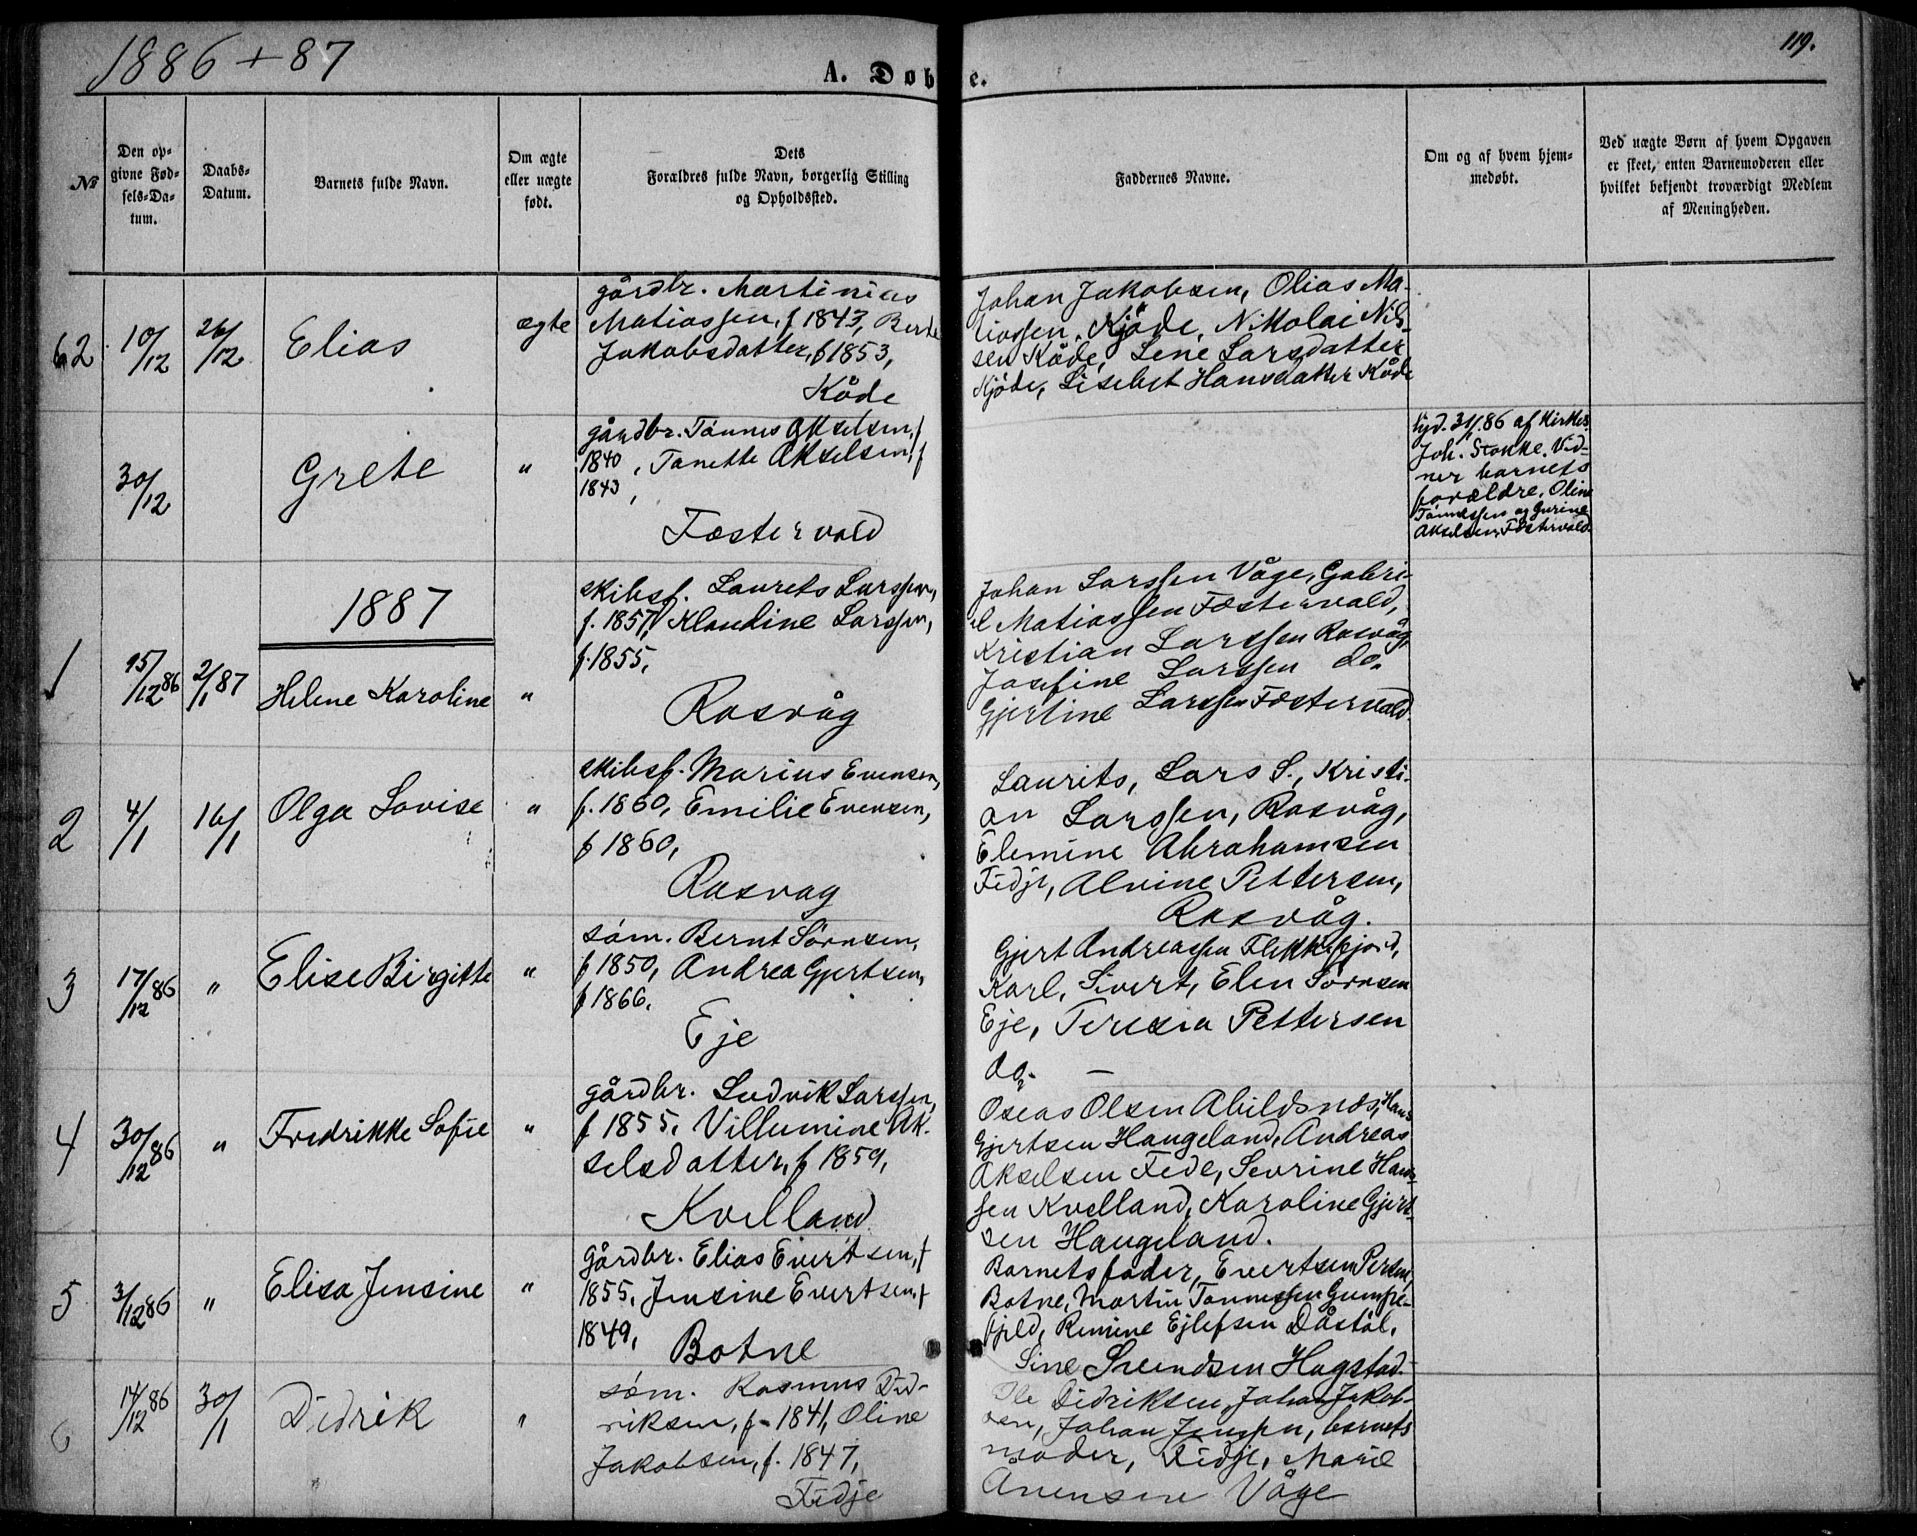 1886 + 87
119.
A. Døb e.
№
Den op-
givne Fød-
sels-Da-
tum.
Daabs-
Datum.
Barnets fulde Navn.
Om ægte
eller uægte
født.
Dets
Forældres fulde Navn, borgerlig Stilling
og Opholdssted.
Faddernes Navne.
Om og af hvem hjem-
medøbt.
Ved uægte Børn af hvem Opgaven
er skeet, enten Barnemoderen eller
hvilket bekjendt troværdigt Medlem
af Meningheden.
62
10/12
26/12
Elias
ægte
gårdbr. Martinius
Matiassen, f 1843, Berte
Jakobsdatter, f 1853,
Kåde
Johan Jakobsen, Olias Ma-
tiassen, Kjöde, Nikolai Nil-
sen Kåde, Lene Larsdatter
Kjöde, Lisebet Hansdatter Kåde
30/12
Grete
"
gårdbr. Tönnes Akselsen, f
1840, Tanette Akselsen, f
1843,
Fæstervold
86 af Kirkes.
Joh. Stokke. Vid-
ner barnets
forældre, Oline
Tönnessen og Gurine
Akselsen, Föstervold.
1887
1
15/12 86
2/1 87
Helene Karoline
"
skibsf. Laurets Larssen,
f. 1857, Klaudine Larssen,
f. 1855,
Rasvåg
Johan Larssen Våge, Gabri-
el Matiassen Fæstervold,
Kristian Larssen Rasvåg,
Josefine Larssen do.
Gjertine Larssen Fæstervold.
2
4/1
16/1
Olga Lovise
"
skibsf. Marius Evensen,
f. 1860, Emilie Evensen,
f 1860,
Rasvag
Laurits, Lars L., Kristi-
an Larssen, Rasvåg,
Elemine Abrahamsen
Fidje, Alvine Pettersen,
Rasvåg.
3
17/12 86
"
Elise Birgitte
"
söm. Bernt Sörnsen,
f 1850, Andrea Gjertsen,
f 1866.
Eje
Gjert Andreassen Flekkefjord,
Karl, Sivert, Elen Sörnsen
Eje, Teresia Pettersen
do. —
4
30/12 86
"
Fredrikke Sofie
"
gårdbr. Ludvik Larssen,
f 1855, Villumine Ak-
selsdatter, f 1859,
Kvelland
Oseas Olsen Abildsnæs, Hans
Gjertsen Haugeland, Andreas
Akselsen Fede, Sevrine Han-
sen Kvelland, Karoline Gjert-
sen Haugeland.
5
3/12 86
"
Elisa Jensine
"
gårdbr. Elias Evertsen, f
1855, Jensine Evertsen, f
1849,
Botne
Barnets fader, Evertsen
Botne, Martin Tönnessen Gumpe-
fjeld, Remine Ejlefsen Dåstöl,
Sine Svendsen Hagstad.
6
14/12 86
30/1
Didrik
"
söm. Rasmus Did-
riksen, f. 1841, Oline
Jakobsen, f. 1847,
Fidje
Ole Didriksen, Johan Jakob-
sen, Johan Jenssen, barnets
moder, Fidje, Marie
Anensen Våge